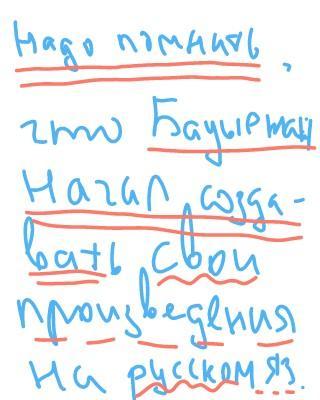 Надо помнить,
что Бауыржан
Начал созда-
вать свои
произведения
на русском яз.